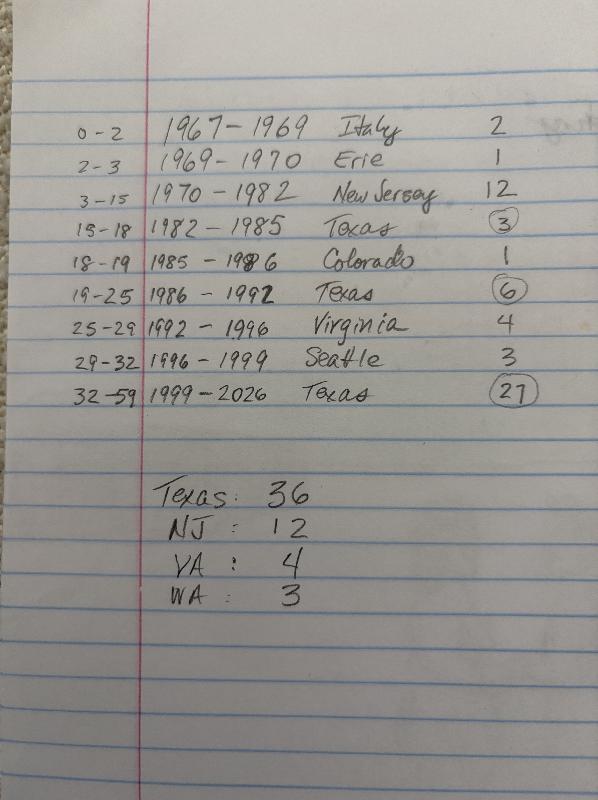 0-2 1967-1969 Italy 2
2-3 1969-1970 Erie 1
3-15 1970-1982 New Jersey 12
15-18 1982-1985 Texas 3
18-19 1985-1986 Colorado 1
19-25 1986-1992 Texas 6
25-29 1992-1996 Virginia 4
29-32 1996-1999 Seattle 3
32-59 1999-2026 Texas 27
Texas: 36
NJ: 12
VA: 4
WA: 3